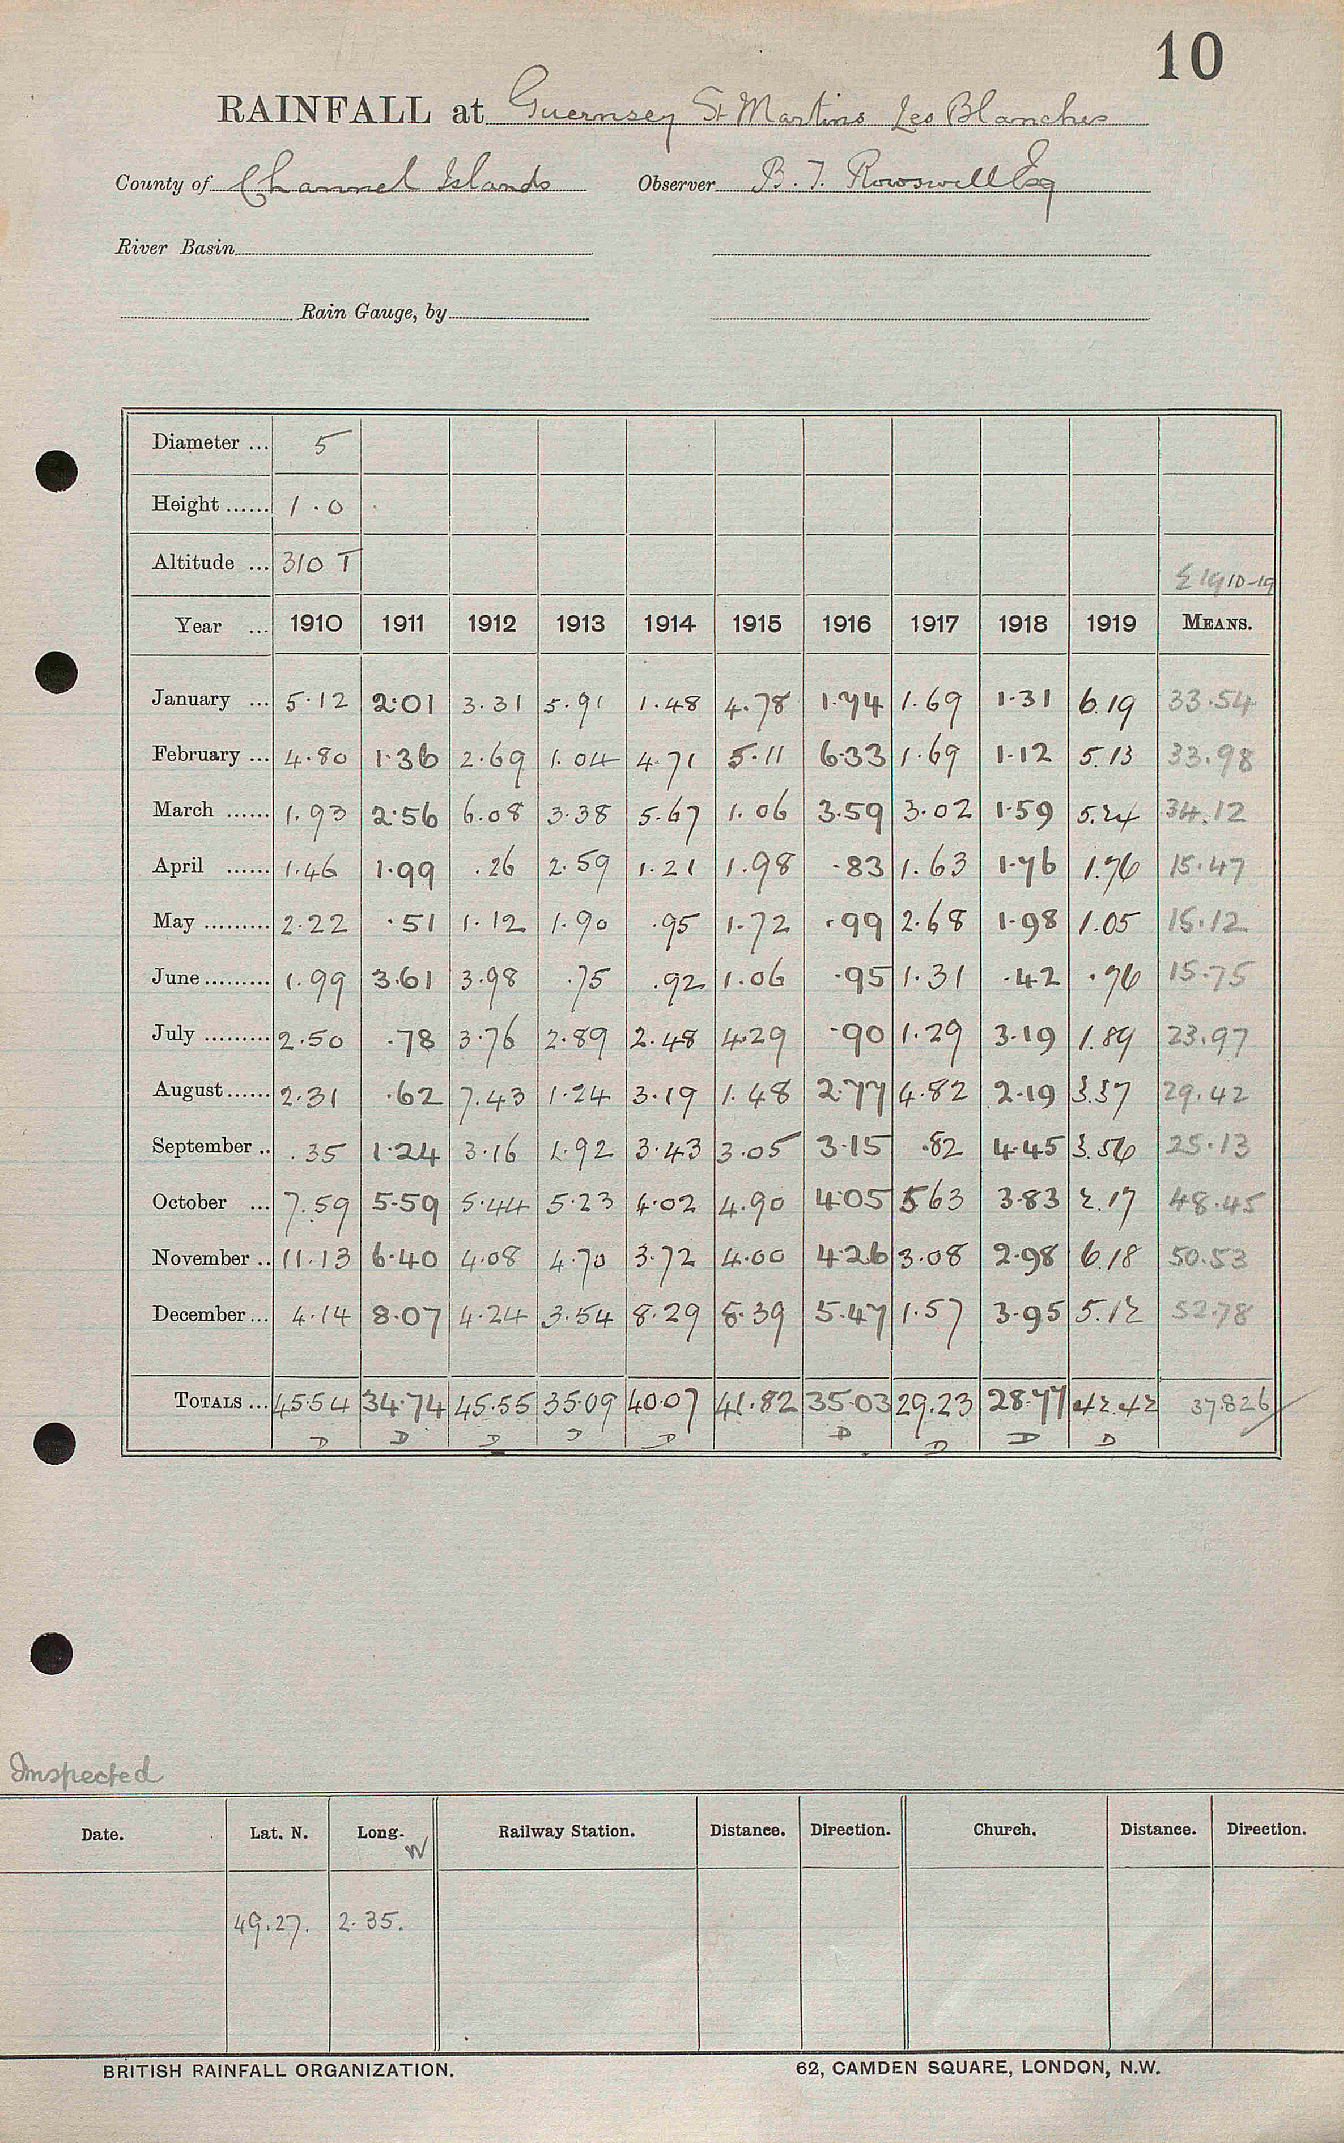 10
RAINFALL at Guernsey St Martins Les Blanches
County of Channel Islands Observer B. T. Rowswell Esq
River Basin
Rain Gauge, by
Diameter ... 5
Height ...... 1.0
Altitude ... 310 T Σ 1910-19
Year ... 1910 1911 1912 1913 1914 1915 1916 1917 1918 1919 MEANS.
January ... 5.12 2.01 3.31 5.91 1.48 4.78 1.74 1.69 1.31 6.19 33.54
February ... 4.80 1.36 2.69 1.04 4.71 5.11 6.33 1.69 1.12 5.13 33.98
March ...... 1.93 2.56 6.08 3.38 5.67 1.06 3.59 3.02 1.59 5.24 34.12
April ...... 1.46 1.99 .26 2.59 1.21 1.98 .83 1.63 1.76 1.76 15.47
May ......... 2.22 .51 1.12 1.90 .95 1.72 .99 2.68 1.98 1.05 15.12
June ......... 1.99 3.61 3.98 .75 .92 1.06 .95 1.31 .42 .76 15.75
July ......... 2.50 .78 3.76 2.89 2.48 4.29 .90 1.29 3.19 1.89 23.97
August ...... 2.31 .62 7.43 1.24 3.19 1.48 2.77 4.82 2.19 3.37 29.42
September .. .35 1.24 3.16 1.92 3.43 3.05 3.15 .82 4.45 3.56 25.13
October ... 7.59 5.59 5.44 5.23 4.02 4.90 4.05 5.63 3.83 2.17 48.45
November .. 11.13 6.40 4.08 4.70 3.72 4.00 4.26 3.08 2.98 6.18 50.53
December ... 4.14 8.07 4.24 3.54 8.29 8.39 5.47 1.57 3.95 5.12 52.78
TOTALS ... 45.54 34.74 45.55 35.09 40.07 41.82 35.03 29.23 28.77 42.42 37.826
D D D D D D D D D
Inspected
Date. Lat. N. Long. W Railway Station. Distance. Direction. Church. Distance. Direction.
49.27. 2.35.
BRITISH RAINFALL ORGANIZATION. 62, CAMDEN SQUARE, LONDON, N.W.